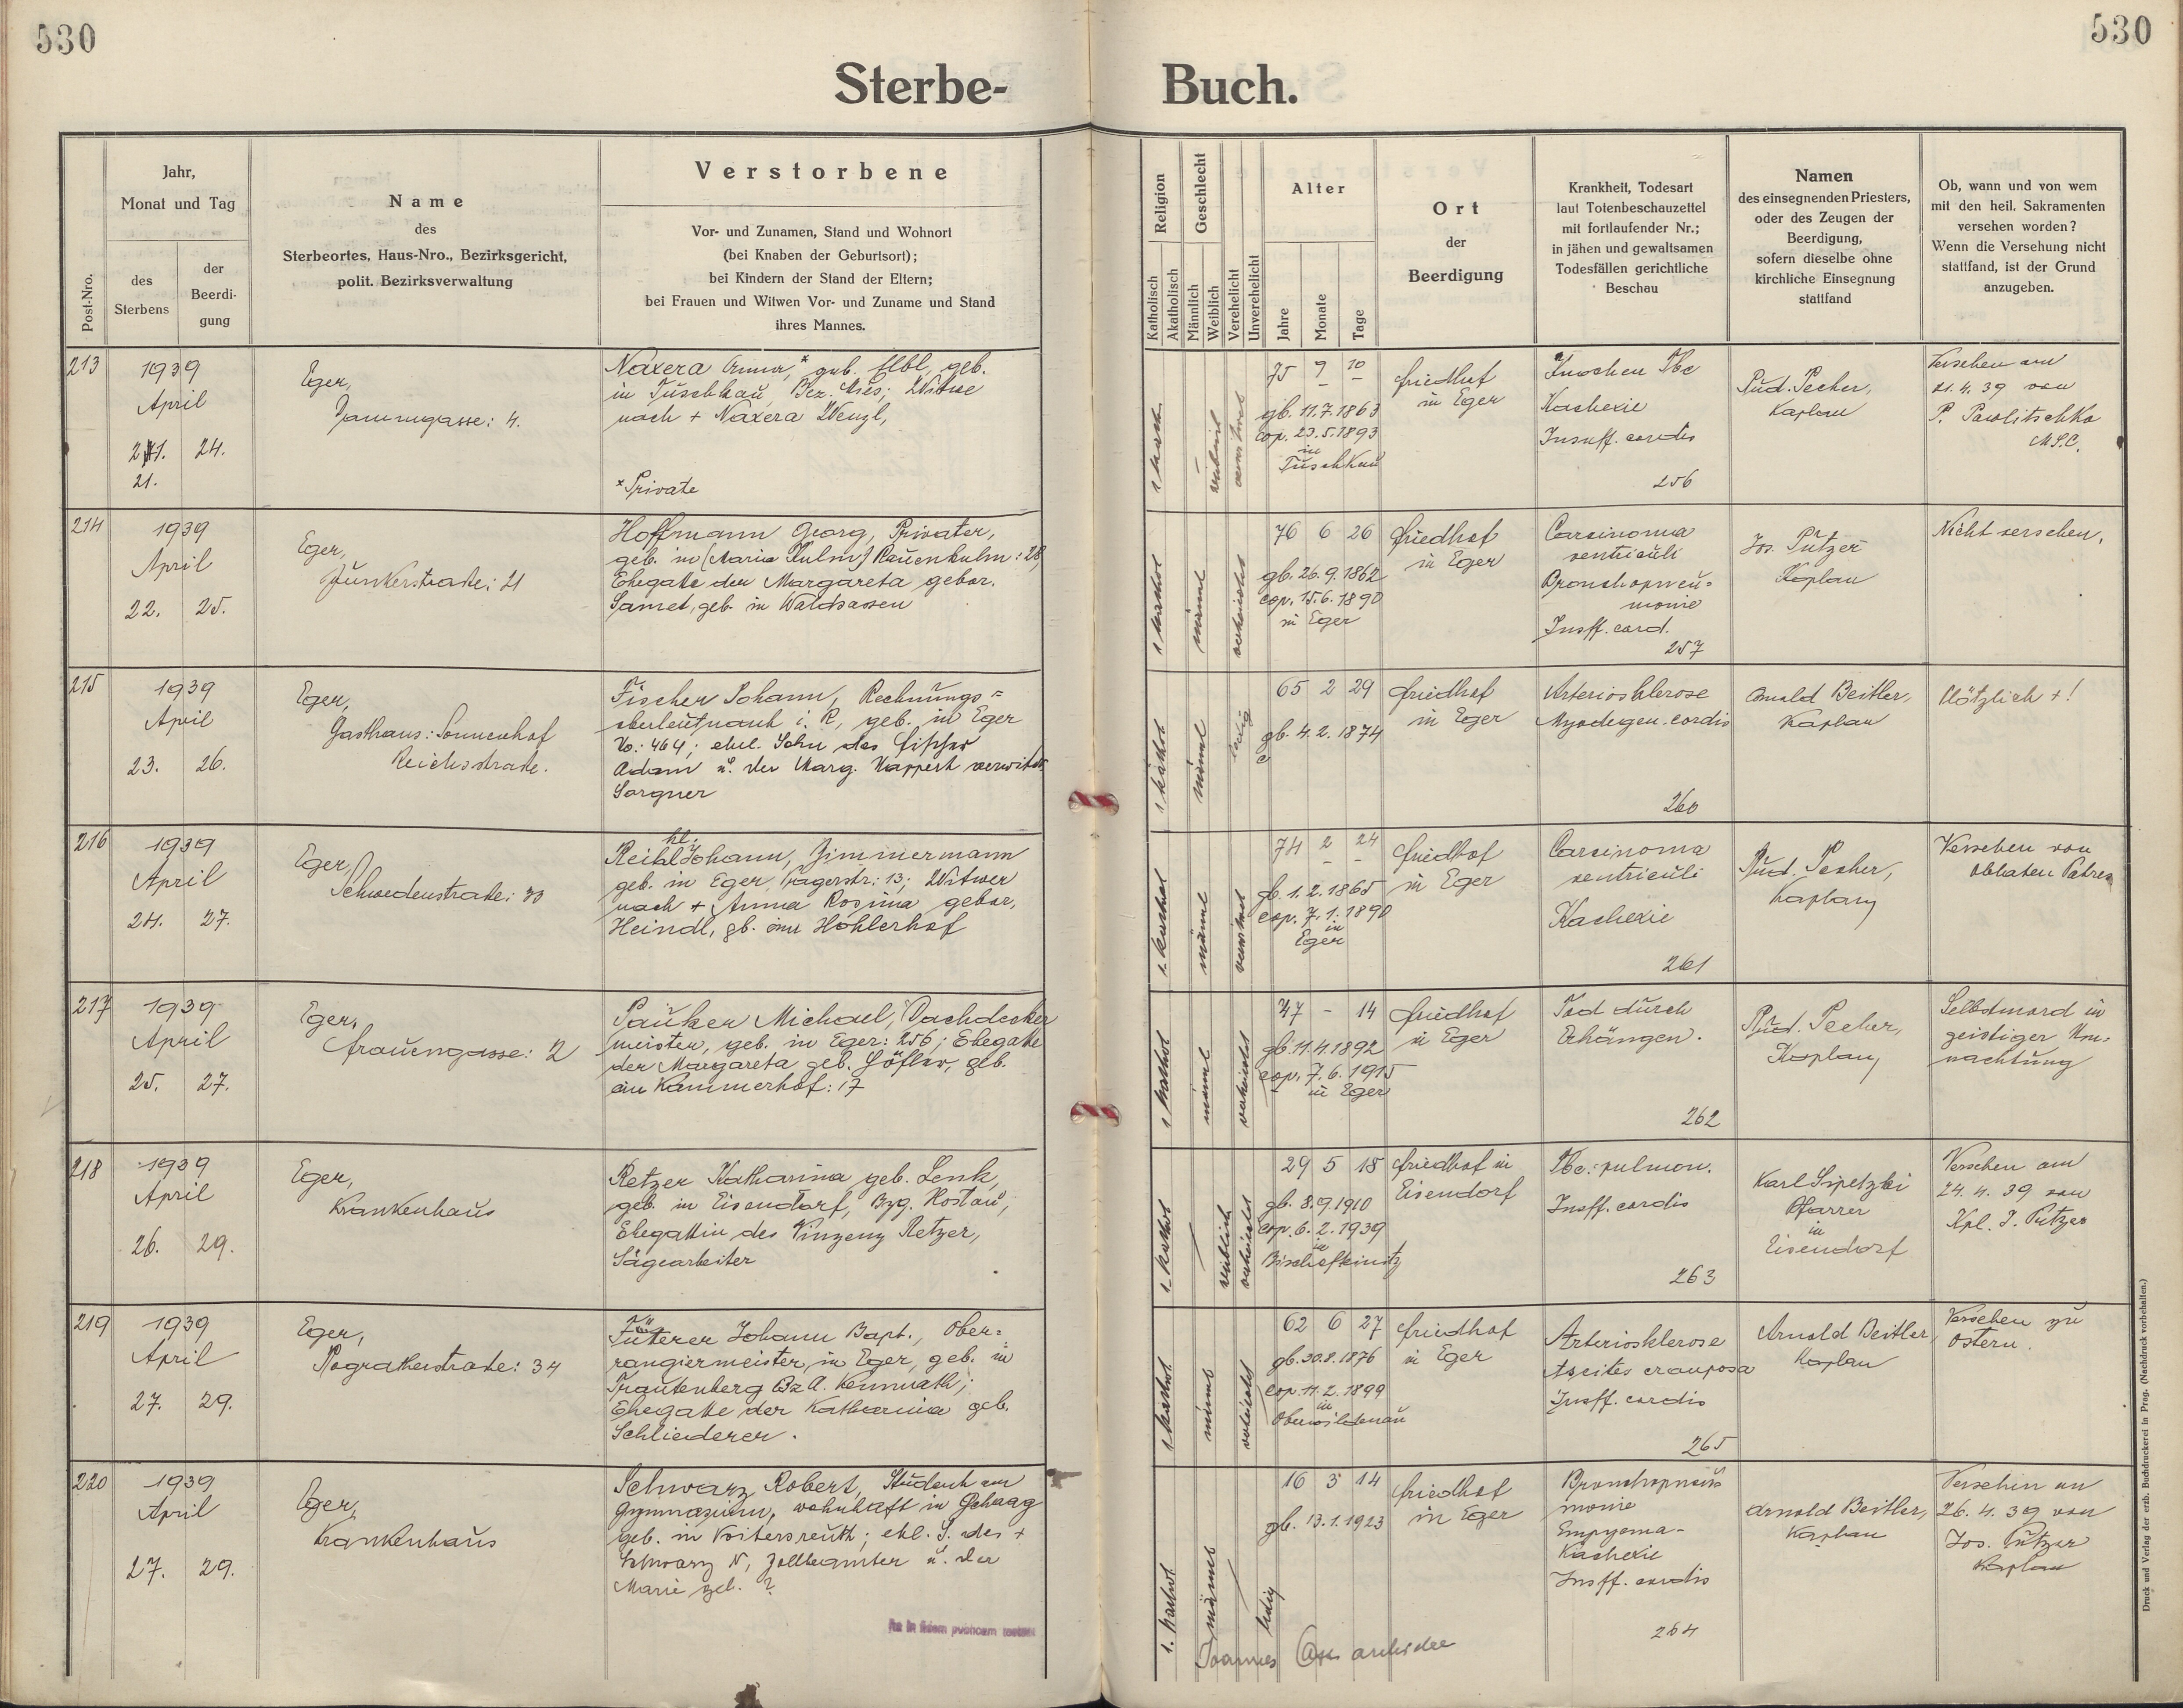 530
530
Sterbe-
Buch.
Post-Nro.
Jahr,
Monat und Tag
des
Sterbens
der
Beerdi-
gung
Name
des
Sterbeortes, Haus-Nro., Bezirksgericht,
polit. Bezirksverwaltung
Verstorbene
Vor- und Zunamen, Stand und Wohnort
(bei Knaben der Geburtsort);
bei Kindern der Stand der Eltern;
bei Frauen und Witwen Vor- und Zuname und Stand
ihres Mannes.
Religion
Katholisch
Akatholisch
Geschlecht
Männlich
Weiblich
Verehelicht
Unverehelicht
Alter
Jahre
Monate
Tage
Ort
der
Beerdigung
Krankheit, Todesart
laut Totenbeschauzettel
mit fortlaufender Nr.;
in jähen und gewaltsamen
Todesfällen gerichtliche
Beschau
Namen
des einsegnenden Priesters,
oder des Zeugen der
Beerdigung,
sofern dieselbe ohne
kirchliche Einsegnung
stattfand
Ob, wann und von wem
mit den heil. Sakramenten
versehen worden?
Wenn die Versehung nicht
stattfand, ist der Grund
anzugeben.
213
1939
April
24.
21.
Eger,
4.
Naxera Anna,* geb.
in Tuschkau, Bez. Mies; Witwe
nach + Naxera Wenzl,
*Private
75 9 10
gb. 11.7.1863
cop. 23.5.1893
in
Tuschkau
Friedhof
in Eger
Knochen Tbc
Kachexie
Insuff. cordis
256
Rud. Pecher,
Kaplan
Versehen am
21.4.39 von
P. Pawlitschka
M.S.C.
214
1939
April
22. 25.
Eger,
Junkerstraße: 21
Hoffmann Georg, Privater,
geb. in (Maria Kulm) Rauenkulm: 28
Ehegatte der Margareta gebor.
Samet, geb. in Waldsassen
1 kathol
männl
verheiratet
76 6 26
gb. 26.9.1862
cop. 15.6.1890
in Eger
Friedhof
in Eger
Carcinoma
ventriculi
Bronchopneu=
monie
Insff. card.
257
Jos. Putzer
Kaplan
Nicht versehen.
215
1939
April
23. 26.
Eger,
Gasthaus: Sonnenhof
Reichsstraße.
Fischer Johann, Rechnungs=
oberleutnant i. R., geb. in Eger
No.: 464; ehel. Sohn des Fischer
Adam u. der Marg. Kappert verwitw.
Sorgner
1 kathol
männl
ledig
65 2 29
gb. 4.2.1874
Friedhof
in Eger
Arteriosklerose
Myodegen. cordis
260
Arnold Beitler,
Kaplan
Plötzlich +!
216
1939
April
24. 27.
Eger,
Schwedenstraße: 33
hl.
Reihl Johann, Zimmermann
geb. in Eger, Pragerstr: 13; Witwer
nach + Anna Rosina gebor.
Heindl, gb. am Höhlerhof
1 kathol
männl
verwitwet
74 2 24
gb. 1.2.1865
cop. 7.1.1890
in
Eger
Friedhof
in Eger
Carcinoma
ventriculi
Kachexie
261
Rud. Pecher,
Kaplan
Versehen von
Oblaten Patres
217
1939
April
25. 27.
Eger,
Frauengasse: 2
Pauker Michael, Dachdecker
meister, geb. in Eger: 256; Ehegatte
der Margareta geb. Höfler, geb.
am Kammerhof: 17
1 kathol
männl
verheiratet
47 - 14
gb. 11.4.1892
cop. 7.6.1915
in Eger
Friedhof
in Eger
Tod durch
Erhängen.
262
Rud. Pecher,
Kaplan
Selbstmord in
geistiger Um-
nachtung
218
1939
April
26. 29.
Eger,
Krankenhaus
Retzer Katharina geb. Lenk,
geb. in Eisendorf, Bzg. Hostau,
Ehegattin des Vinzenz Retzer,
Sägearbeiter
1 kathol
weiblich
verheiratet
29 5 18
gb. 8.9.1910
cop. 6.2.1939
in
Bischofteinitz
Friedhof in
Eisendorf
Tbc: pulmon.
Insff. cordis
263
Karl Sipetzki
Pfarrer
in
Eisendorf
Versehen am
24.4.39 von
Kpl. J. Putzer
219
1939
April
27. 29.
Eger,
Pogratherstraße: 34
Fütterer Johann Bapt., Ober=
rangiermeister, in Eger, geb. in
Trautenberg Bz A. Kemnath;
Ehegatte der Katharina geb.
Schliederer.
1 kathol.
männl
verheiratet
62 6 27
gb. 30.8.1876
cop. 11.2.1899
in
Oberwildenau
Friedhof
in Eger
Arteriosklerose
Ascites crouposa
Insff. cordis
265
Arnold Beitler,
Kaplan
Versehen zu
Ostern.
220
1939
April
27. 29.
Eger,
Krankenhaus
Schwarz Robert, Student am
Gymnasium, wohnhaft in Gehaag
geb. in Voitersreuth; ehl. S. des +
Schwarz N, Zollbeamter u. der
Marie geb. ?
1. kathol
männl
ledig
16 3 14
gb. 13.1.1923
Friedhof
in Eger
Bronchopneu=
monie
Empyema-
Kachexie
Insff. cordis
264
Arnold Beitler,
Kaplan
Versehen am
26.4.39 von
Jos. Putzer
Kaplan
Joannes
Druck und Verlag der erzb. Buchdruckerei in Prag. (Nachdruck vorbehalten.)